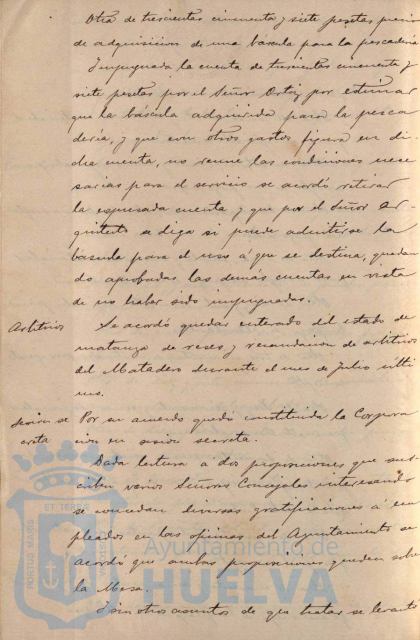 Otra de trescientas cincuenta y siete pesetas precio
de adquisicion de una báscula para la pescaderia
Impugnada la cuenta de trescientas cincuenta y
siete pesetas por el Señor Ortiz por estimar
que la báscula adquirida para la pesca
dería, y que con otros gastos figura en di-
cha cuenta, no reune las condiciones nece
sarias para el servicio se acordó retirar
la espresada cuenta y que por el Señor Ar-
quitecto se diga si puede admitirse la
báscula para el uso á que se destina, quedan
do aprobadas las demás cuentas en vista
de no haber sido impugnadas.
Arbitrios
Se acordó quedar enterado del estado de
matanza de reses y recaudacion de arbitrios
del Matadero durante el mes de Julio últi
mo.
Sesion se
creta
Por su acuerdo quedó constituida la Corpora
cion en sesion secreta.
Dada lectura a dos proposiciones que sus-
criben varios Señores Concejales interesando
se concedan diversas gratificaciones á em
pleados en las oficinas del Ayuntamiento se
acordó que ambas proposiciones queden sobre
la Mesa.
Y sin otros asuntos de que tratar se levantó
PORTUS MARIS
ET TERRE
Ayuntamiento de
HUELVA